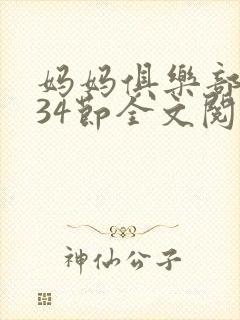 妈妈俱樂部
34節全文閱
神仙公子